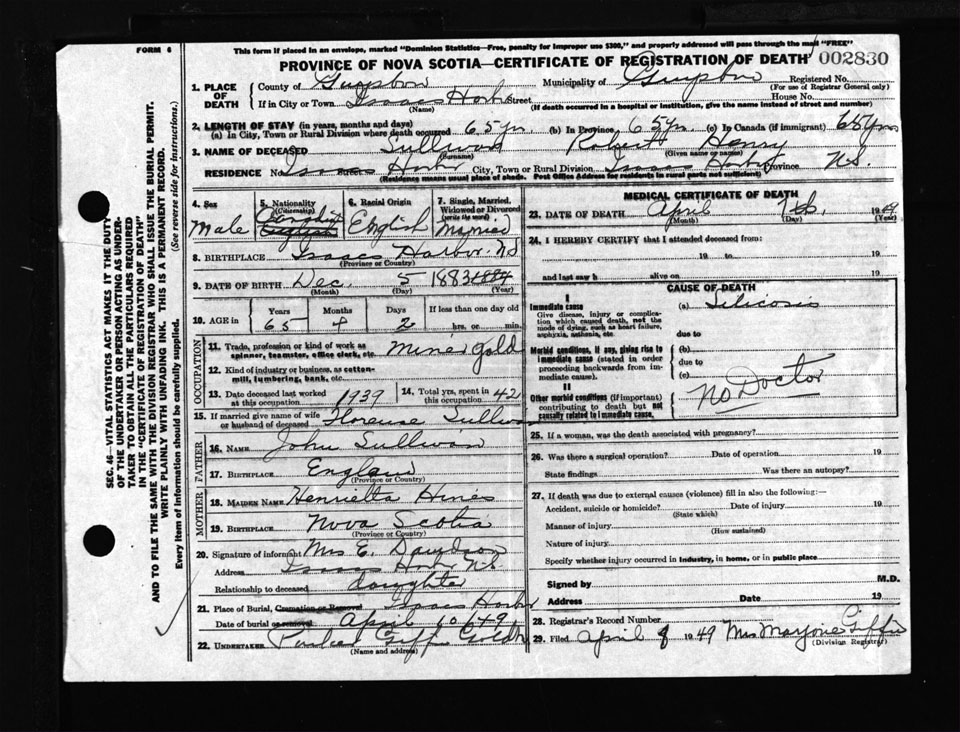 FORM 6
This form if placed in an envelope, marked "Dominion Statistics—Free, penalty for improper use $300," and properly addressed will pass through the mail "FREE"
PROVINCE OF NOVA SCOTIA—CERTIFICATE OF REGISTRATION OF DEATH 002830
1. PLACE OF DEATH
County of Guysboro Municipality of Guysboro Registered No.
(For use of Registrar General only)
If in City or Town Isaacs Harbor Street House No.
(Name) (If death occurred in a hospital or institution, give the name instead of street and number)
2. LENGTH OF STAY (in years, months and days)
(a) In City, Town or Rural Division where death occurred 65 yrs (b) In Province 65 yrs (c) In Canada (if immigrant) 65 yrs
3. NAME OF DECEASED Sullivan Robert Henry
(Surname) (Given name or names)
RESIDENCE No. Isaacs Harbor Street City, Town or Rural Division Isaacs Harbor Province N.S.
(Residence means usual place of abode. Post Office Address for residents in rural parts not sufficient)
4. Sex Male
5. Nationality (Citizenship) English
6. Racial Origin English
7. Single, Married, Widowed or Divorced (write the word) Married
8. BIRTHPLACE Isaacs Harbor N.S
(Province or Country)
9. DATE OF BIRTH Dec. 5 1883 1884
(Month) (Day) (Year)
10. AGE in Years Months Days If less than one day old
65 4 2 hrs. or min.
OCCUPATION
11. Trade, profession or kind of work as spinner, teamster, office clerk, etc. Miner Gold
12. Kind of industry or business, as cotton-mill, lumbering, bank, etc.
13. Date deceased last worked at this occupation 1939
14. Total yrs. spent in this occupation 42
15. If married give name of wife or husband of deceased Florence Sullivan
FATHER
16. NAME John Sullivan
17. BIRTHPLACE England
(Province or Country)
MOTHER
18. MAIDEN NAME Henrietta Hines
19. BIRTHPLACE Nova Scotia
(Province or Country)
20. Signature of informant Mrs E. Davidson
Address Isaacs Harbor N.S.
Relationship to deceased daughter
21. Place of Burial, Cremation or Removal Isaacs Harbor
Date of burial or removal April 10/49
22. UNDERTAKER
(Name and address)
MEDICAL CERTIFICATE OF DEATH
23. DATE OF DEATH April 7th 1949
(Month) (Day) (Year)
24. I HEREBY CERTIFY that I attended deceased from:
19 to 19
and last saw h alive on 19
CAUSE OF DEATH
I
Immediate cause
Give disease, injury or complication which caused death, not the mode of dying, such as heart failure, asphyxia, asthenia, etc
(a) Silicosis
due to
Morbid conditions, if any, giving rise to immediate cause (stated in order proceeding backwards from immediate cause).
(b)
due to
(c)
No Doctor
II
Other morbid conditions (if important) contributing to death but not causally related to immediate cause
25. If a woman, was the death associated with pregnancy?
26. Was there a surgical operation? Date of operation 19
State findings Was there an autopsy?
27. If death was due to external causes (violence) fill in also the following:—
Accident, suicide or homicide? Date of injury 19
(State which)
Manner of injury
(How sustained)
Nature of injury
Specify whether injury occurred in industry, in home, or in public place
Signed by M.D.
Address Date 19
28. Registrar's Record Number
29. Filed April 9 1949 Mrs Marjorie Giffin
(Division Registrar)
SEC. 46—VITAL STATISTICS ACT MAKES IT THE DUTY
OF THE UNDERTAKER OR PERSON ACTING AS UNDERTAKER TO OBTAIN ALL THE PARTICULARS REQUIRED
IN THE "CERTIFICATE OF REGISTRATION OF DEATH"
AND TO FILE THE SAME WITH THE DIVISION REGISTRAR WHO SHALL ISSUE THE BURIAL PERMIT.
WRITE PLAINLY WITH UNFADING INK. THIS IS A PERMANENT RECORD.
Every item of information should be carefully supplied. (See reverse side for instructions.)